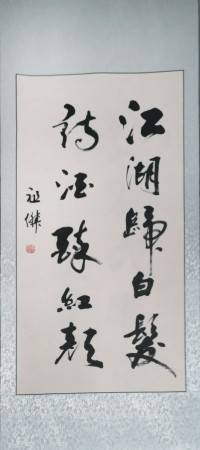 江湖歸白髮
詩酒醉紅顏
祖傑